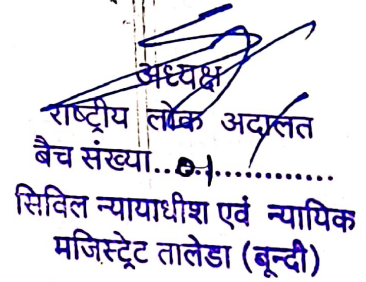 अध्यक्ष
राष्ट्रीय लोक अदालत
बैच संख्या...01.............
सिविल न्यायाधीश एवं न्यायिक
मजिस्ट्रेट तालेडा (बून्दी)